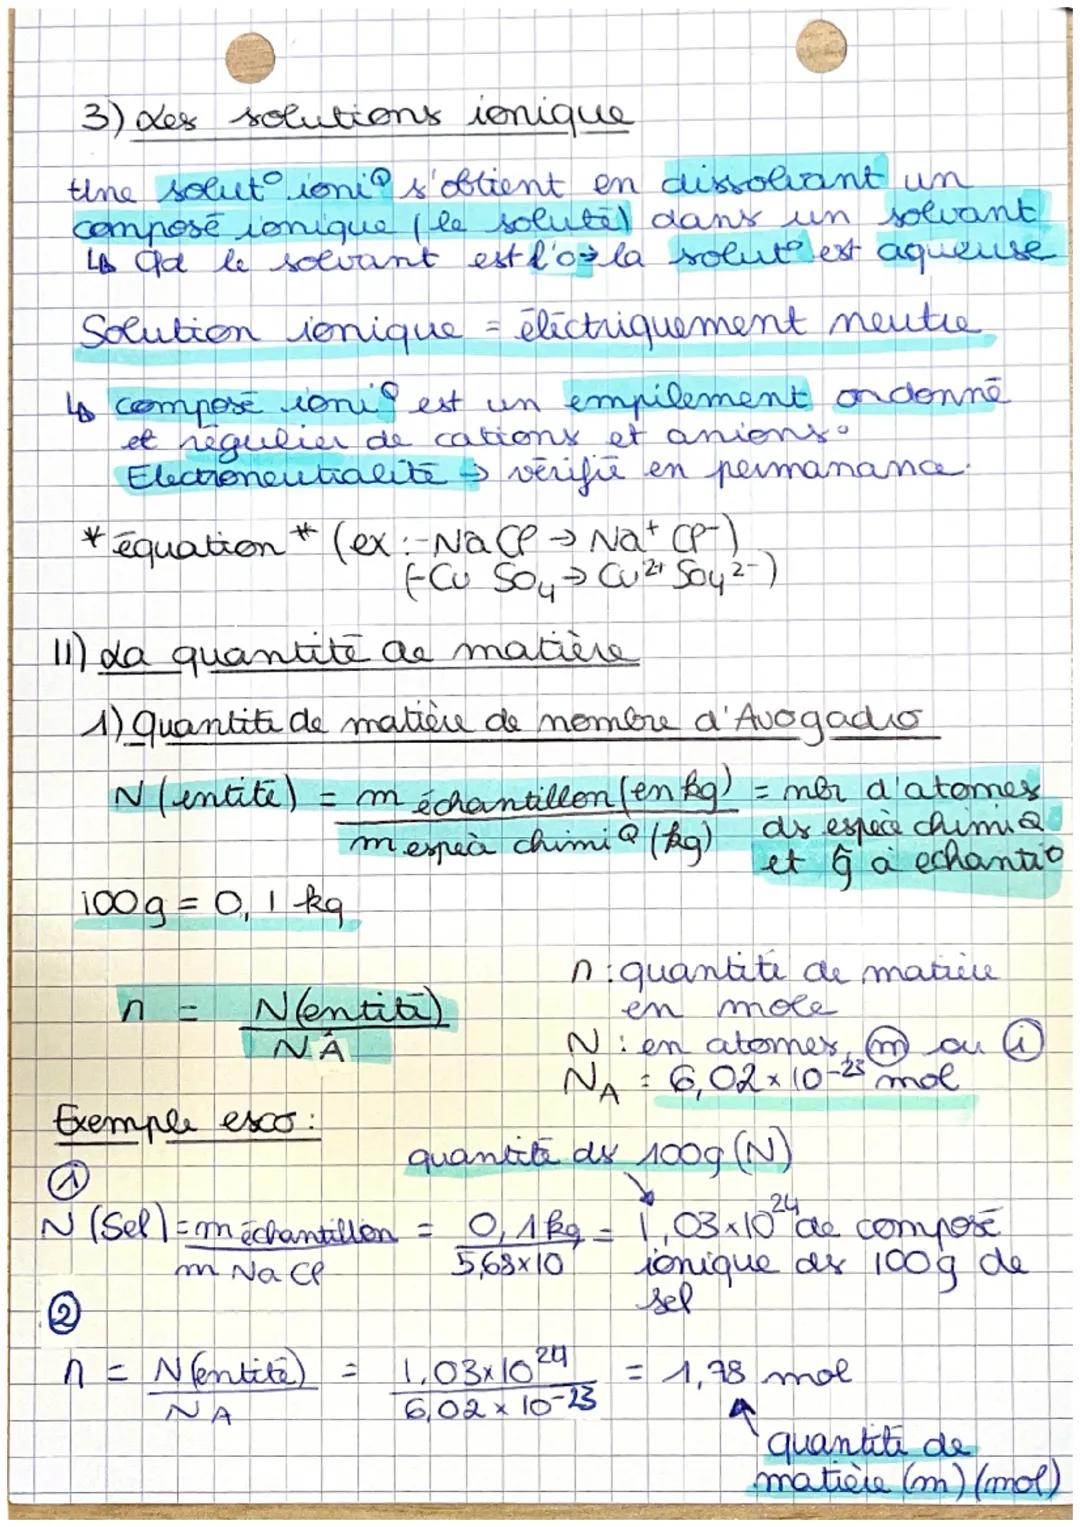 3) Les solutions ionique
Une solut° ioniQ s'obtient en dissolvant un
composé ionique (le soluté) dans un solvant
↳ Qd le solvant est l'o → la solut° est aqueuse
Solution ionique = éléctriquement neutre
↳ composé ioniQ est un empilement ordonné
et régulier de cations et anions.
Electroneutralité → vérifié en permanance.
* équation * (ex :- NaCl → Na+ Cl-)
(- Cu SO4 → Cu2+ SO4 2-)
II) La quantité de matière
1) Quantité de matière de nombre d'Avogadro
N (entité) = m échantillon (en kg) / m espèce chimiQ (kg) = nbr d'atomes
ds espèce chimiQ
et à echantio
100g = 0,1 kg
n : quantité de matière
en mole
n = N(entité) / NA
N : en atomes, m ou i
NA = 6,02 × 10-23 mol
Exemple exo :
quantité ds 100g (N)
①
N (Sel) = m échantillon / m NaCl = 0,1 kg / 5,68×10 = 1,03×10 24 de composé
ionique ds 100g de
sel
②
n = N(entité) / NA = 1,03×10 24 / 6,02 × 10-23 = 1,78 mol
quantité de
matière (m) (mol)